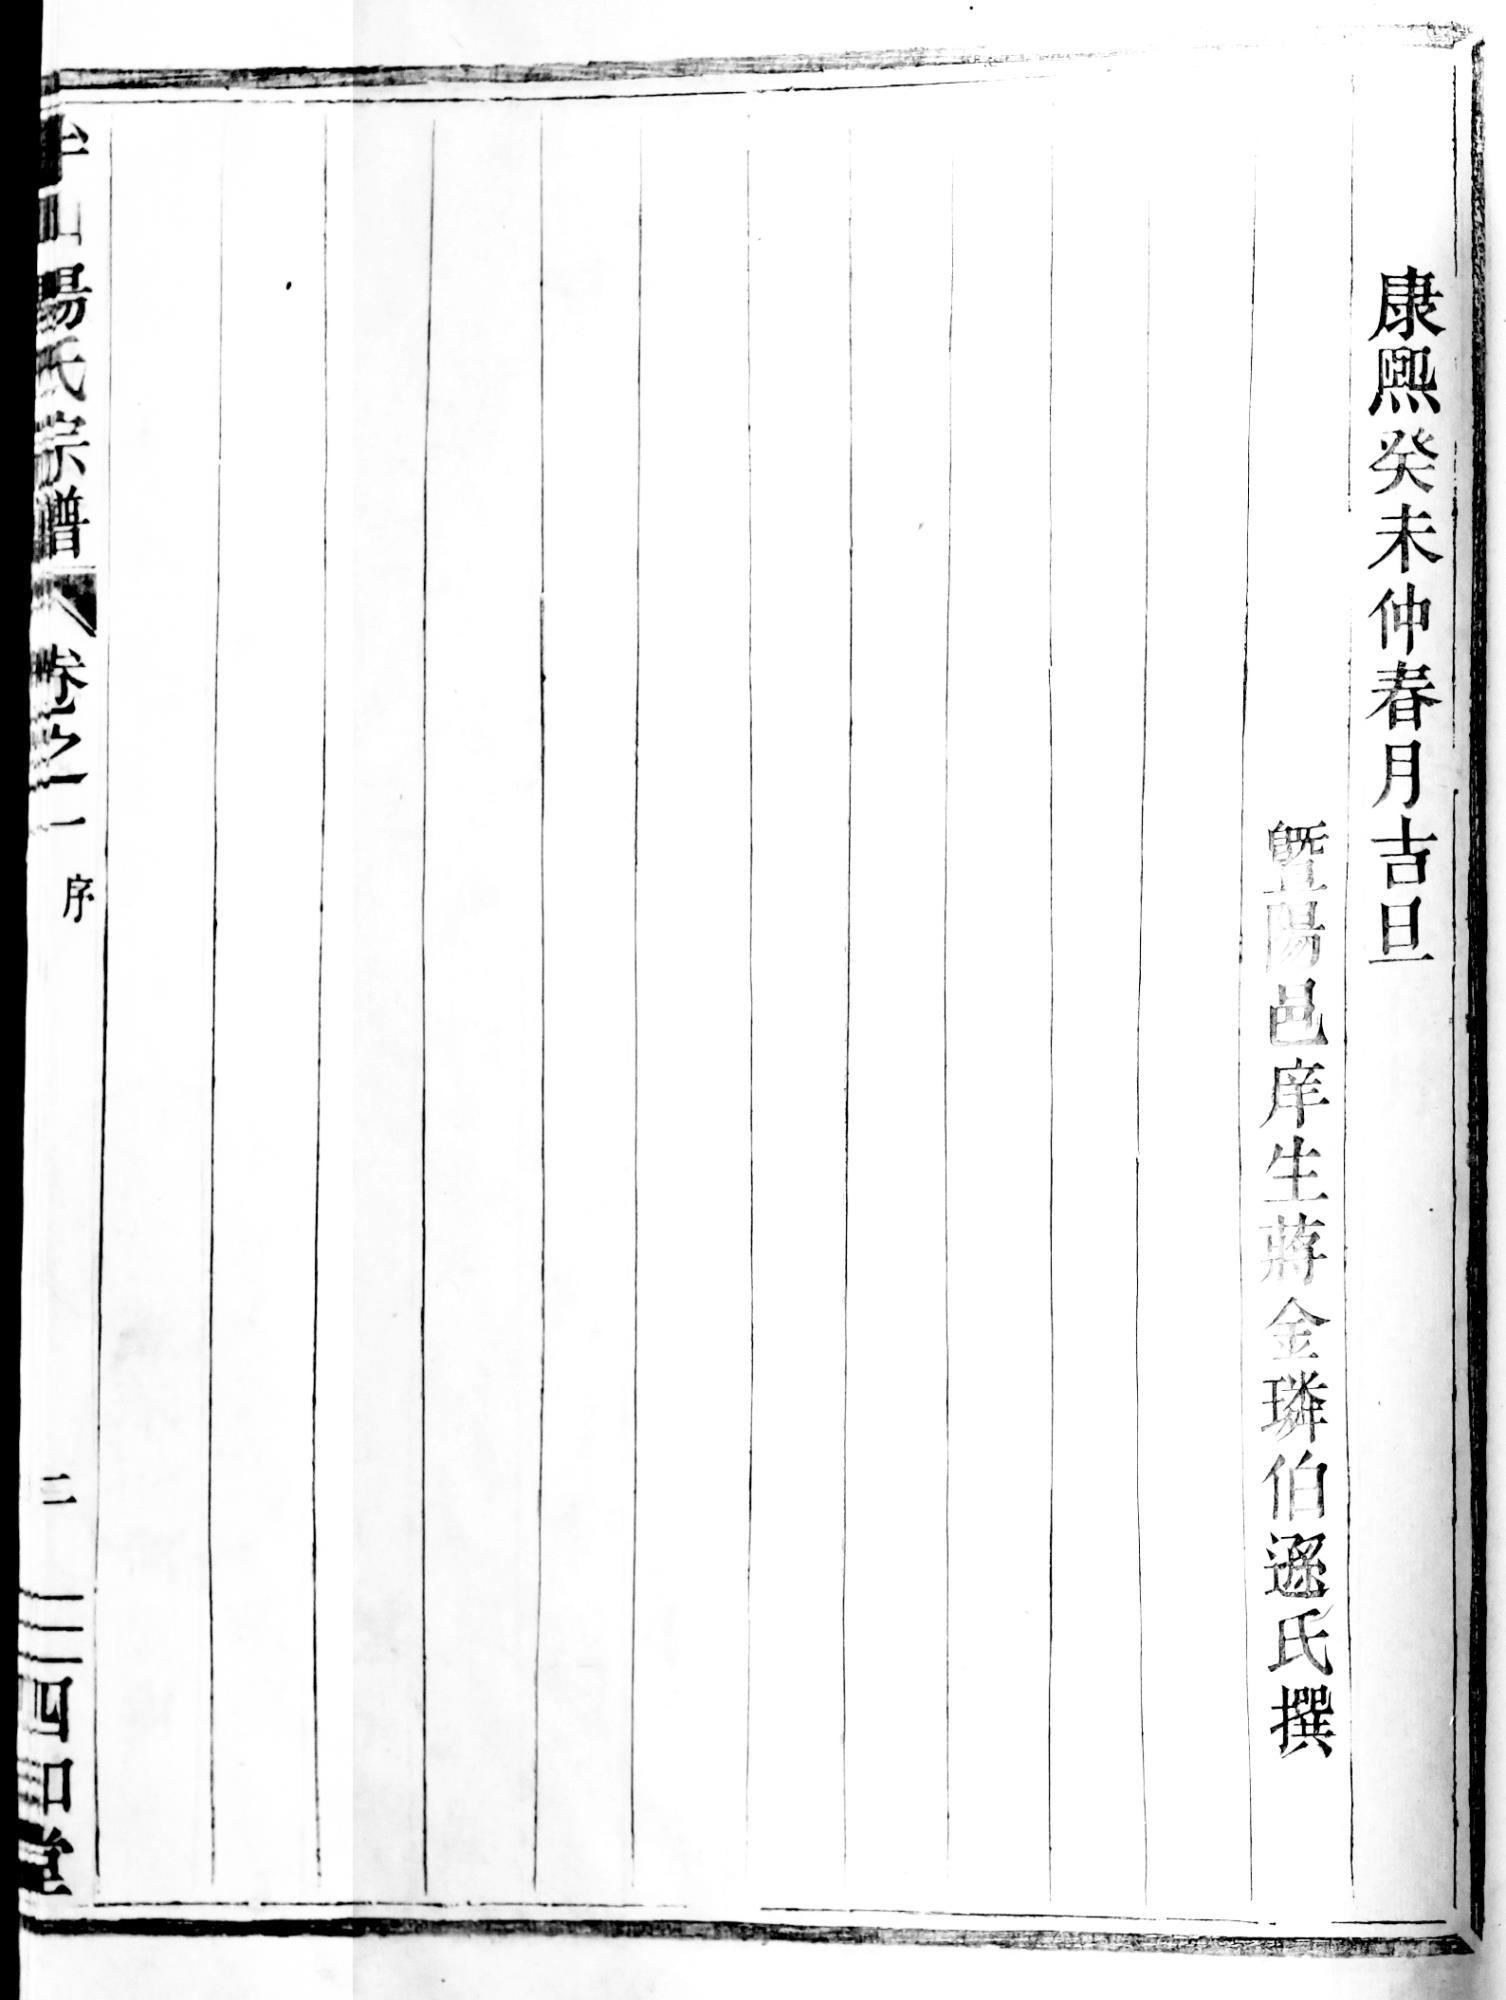 康熙癸未仲春月吉旦
暨陽邑庠生蔣金璘伯遜氏撰
山湯氏宗譜
卷之一
序
二
四和堂